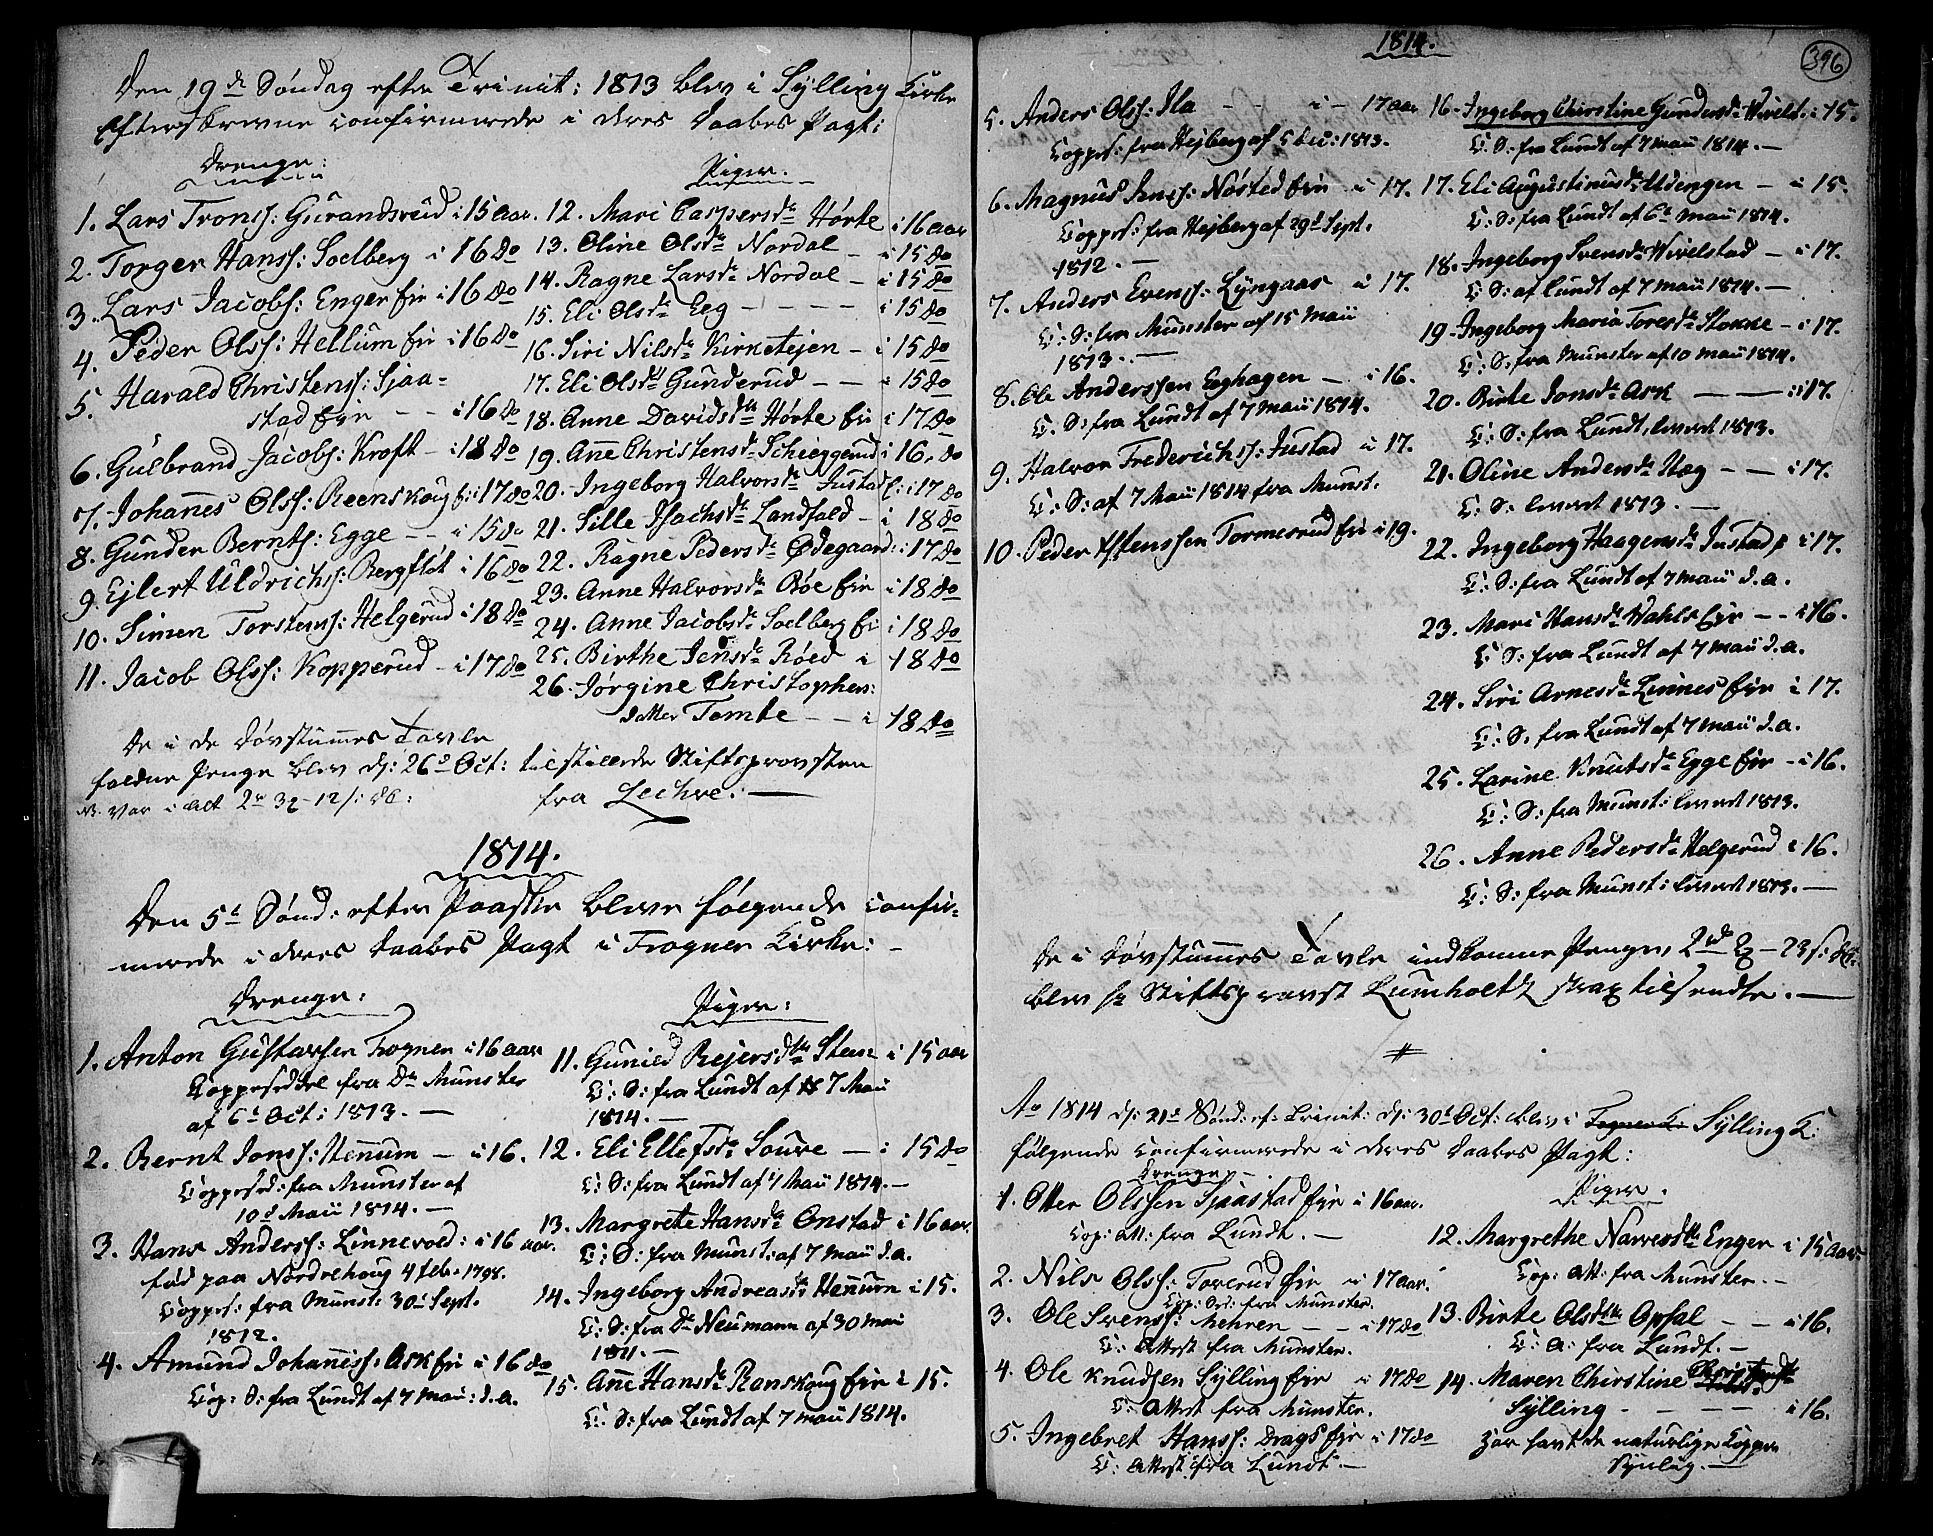 Den 19de Søndag efter Trinit: 1813 blev i Sylling Kirke
Efterskrevne confirmerede i deres Daabes Pagt:
Drenge:
1. Lars Tronss: Gurandsrud i 15 aar.
2. Torger Hanss: Soelberg i 16 do
3. Lars Jacobs: Enger Eir i 16 do
4. Peder Olss: Hellum Eir i 16 do
5. Harald Christenss: Sjaa=
stad Eir - - i 16 do
6. Gulbrand Jacobs: Kroft - i 18 do
7. Johannes Olss: Reenskoug Ei: i 17 do
8. Gunder Bernts: Egge - - i 15 do
9. Ejlert Uldrichs: Bergfløt i 16 do
10. Simen Torstenss: Helgerud i 18 do
11. Jacob Olss: Kopperud - i 17 do
Piger.
12. Mari Caspersdr Hørte i 16 aar
13. Oline Olsdr Nordal - i 15 do
14. Ragne Larsdr Nordal - i 15 do
15. Eli Olsdr Eeg - - - - i 15 do
16. Siri Nilsdr Kirketejen - i 15 do
17. Eli Olsdr Gunderud - - i 15 do
18. Anne Davidsdtr Hørte Ei i 17 do
19. Anne Christensdr Scheggerud i 16. do
20. Ingeborg Halvorsdr Justad E: i 17 do
21. Sille Isachsdr Landfald - i 18 do
22. Ragne Pedersdr Ødegaard: i 17 do
23. Anne Halvorsdr Røe Eir i 18 do
24. Anne Jacobsdr Soelberg Ei i 18 do
25. Birthe Jensdr Røed i 18 do
26. Jørgine Christophers:
datter Tomte - - i 18 do
De i de Døvstummes Tavle
faldne Penge blev d: 26de Oct: tilstillede Stiftsprovsten
var i alt 2 32-12 s:
fra Lechve. -
1814.
Den 5te Sønd: efter Paaske bleve følgende confir=
merede i deres Daabes Pagt i Frogner Kirke: -
Drenge:
1. Anton Gustavsen Frogner i 16 aar
Koppesedel fra Dr Munster
af 6te Oct: 1813. -
2. Bernt Jonss: Hennum - i 16.
Coppesed: fra Munster af
10de Maii 1814. -
3. Hans Anderss: Linnevold: i 16 aar.
fød paa Nordrehoug 4 Feb. 1798.
Coppes: fra Munst: 30te Sept.
1812.
4. Amund Johanness: Ask Eir i 16 do
Cop: S: fra Lundt af 7 Maii: d.a.
Piger:
11. Gunild Rejersdtr Steen i 15 aar
C: S: fra Lundt af 7 Maii
1814. -
12. Eli Ellefsdr Soure - i 15 do
C: S: fra Lundt af 7 Maii 1814. -
13. Margrete Hansdr Onstad i 16 aar.
C: S: fra Munst: af 7 Maii d.a.
14. Ingeborg Andreasdr Hennum i 15.
C: S: fra Dr Neumann af 30 Mai
1811. -
15. Anne Hansdr Ranskoug Eir i 15.
C: S: fra Lundt af 7 Maii 1814.
1814.
396
5. Anders Olss: Ila - - i - 17 aar
Coppes: fra Hejberg af 5 Dec: 1813.
6. Magnus Jens: Nøsted Eir i 17.
Coppes: fra Hejberg af 29de Sept.
1812. -
7. Anders Evenss: Lyngaas i 17.
C: S: fra Munster af 15 Maii
1813. -
8. Ole Anderssen Eeghagen - i 16.
C. S: fra Lundt af 7 Maii 1814.
9. Halvor Frederichs: Justad i 17.
C: S: af 7 Maii 1814 fra Munst.
10. Peder Ystenssen Tormesrud Eir i 19.
16. Ingeborg Chirstine Gundersdr Wivelst. i 15.
C: S: fra Lundt af 7 Maii 1814. -
17. Eli Augustinusdr Udengen - i 15.
C: S: fra Lundt af 6te Maii 1814.
18. Ingeborg Svensdr Wivelstad - i 17.
C: S: af Lundt af 7 Maii 1814. -
19. Ingeborg Maria Toresdr Stokke - i 17.
C: S: fra Munster af 10 Maii 1814.
20. Birte Jonsdr Ask - - i 17.
C: S: fra Lundt, leveret 1813.
21. Oline Andersdr Hæg - - i 17.
C: S: leveret 1813. -
22. Ingeborg Haagensdr Justad i 17.
C: S: fra Lundt af 7 Maii d.a.
23. Mari Hansdr Wahls Eir - - i 16.
C: S: fra Lundt af 7 Maii d.a.
24. Siri Arnesdr Linnes Eir i 17.
C: S: fra Lundt af 7 Maii d.a.
25. Larine Knutsdr Egge Eir - i 16.
C: S: fra Munst: leveret 1813.
26. Anne Pedersdr Helgerud i 16.
C: S: fra Munst: leveret 1813. -
De i Døvstummes Tavle indkomne Penge, 2 - 23 s:
blev Hr Stiftsprovst Lumholtz strax tilsendte. -
Ao 1814 d: 21de Sønd: ef: Trinit: d: 30te Oct: blev i Frogner K: Sylling K:
følgende confirmerede i deres Daabes Pagt:
Drenge, -
1. Otter Olssen Sjaastad Eir i 16 aar.
Cop: Att: fra Lundt. -
2. Nils Olss: Torerud Eir i 17 aar.
Cop: Sed: fra Munster.
3. Ole Svens: Mehren - - i 17 do
C: Attest fra Munster.
4. Ole Knudsen Sylling Eir i 17 do
C: Attest fra Munster.
5. Ingebret Hanss: Drags Eir i 17 do
C: Attest fra Lundt. -
Piger.
12. Margrethe Narvesdtr Enger i 15 aar
Cop: Att: fra Munster. -
13. Birte Olsdtr Opsal - - i 16.
C: A: fra Lundt. -
14. Maren Chirstine
Sylling - - - - i 16.
har havt de naturlige Kopper
Synlig. -